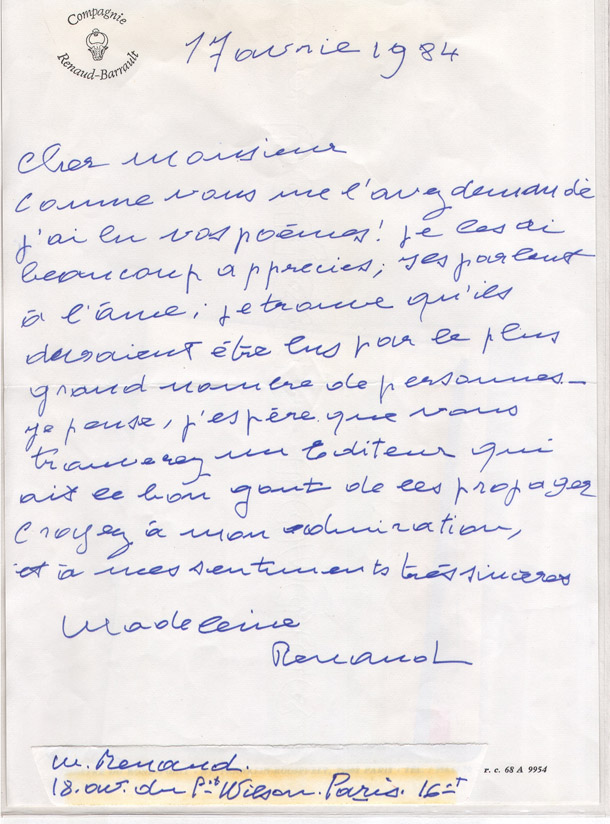 Compagnie
Renaud-Barrault
17 avrie 1984
Cher Monsieur
Comme vous me l'avez demandé
j'ai lu vos poèmes! je les ai
beaucoup apprecies; ils parlent
à l'âme; je trouve qu'ils
devraient être lus par le plus
grand nombre de personnes_
je pense, j'espère que vous
trouverez un Editeur qui
ait le bon gout de les propager
Croyez à mon admiration,
et à mes sentiments très sinceres
Madeleine
Renaud
M. Renaud.
18. av. du Pt Wilson. Paris. 16
r. c. 68 A 9954